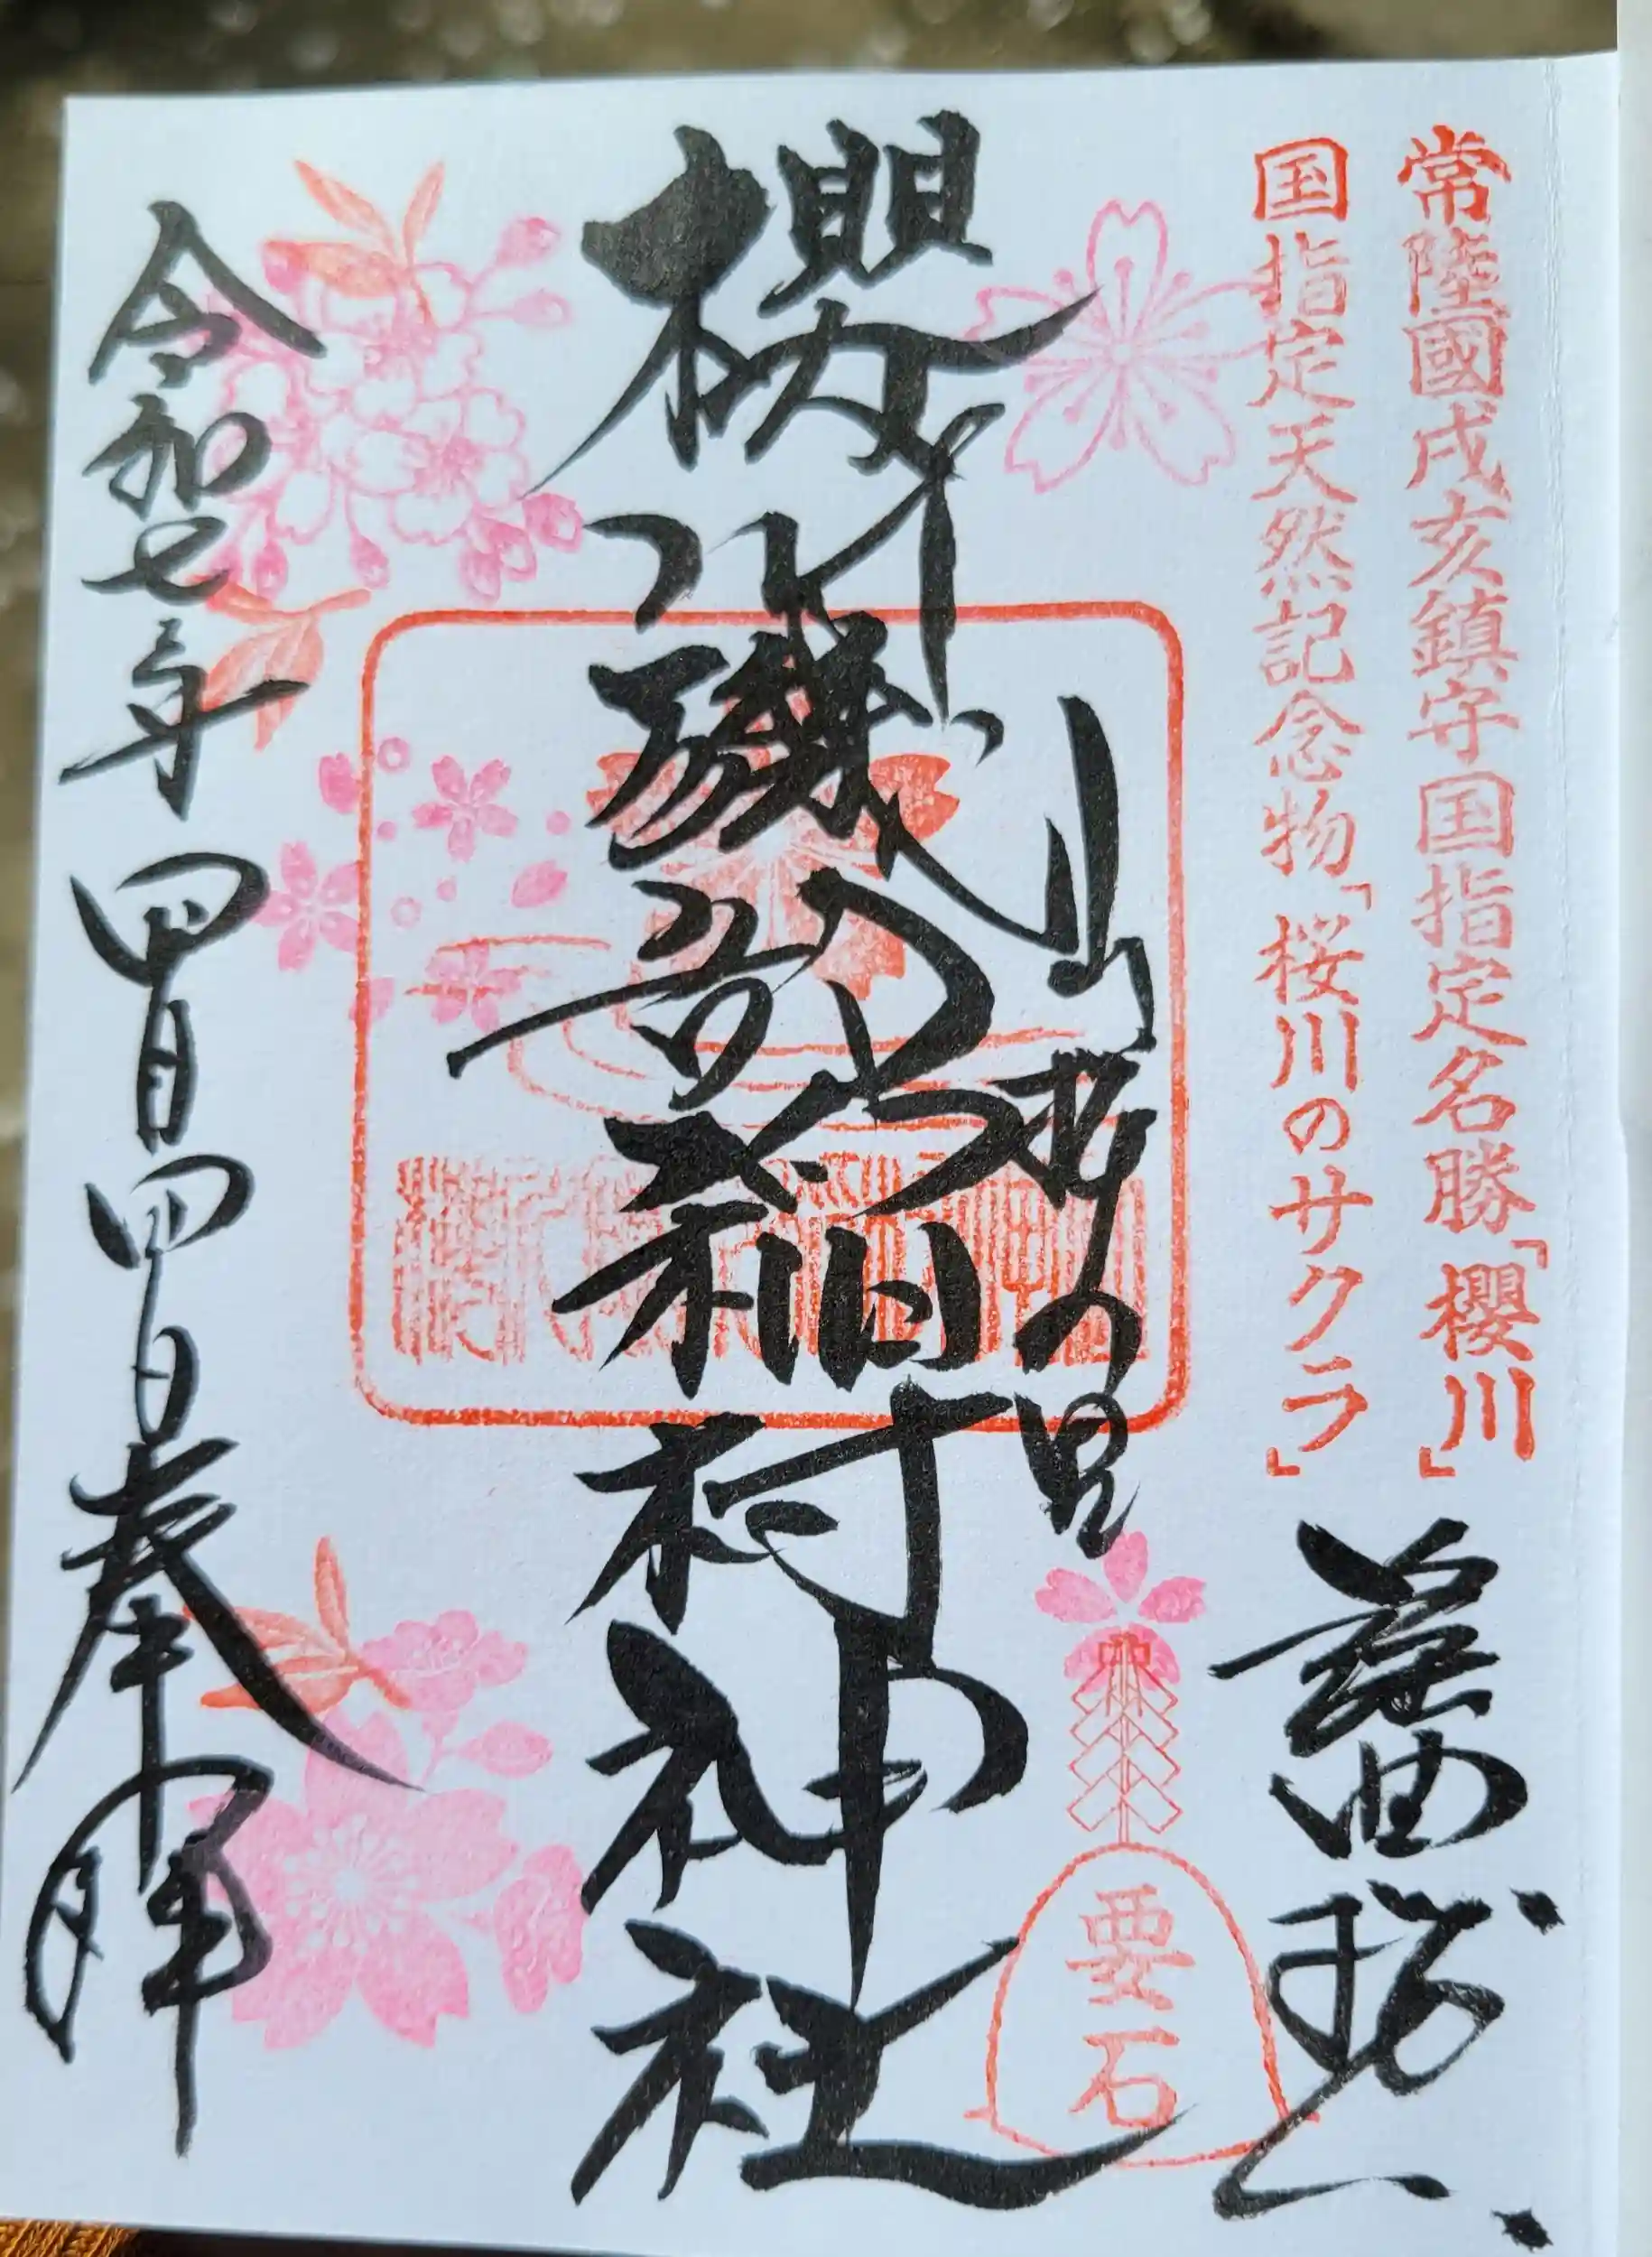 常陸國戌亥鎮守国指定名勝「櫻川」
国指定天然記念物「桜川のサクラ」
謡曲発祥
要石
山桜の里
櫻川磯部稲村神社
令和七年四月四日奉拝